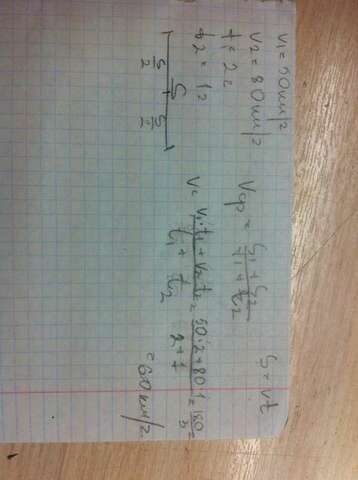 v₁ = 50км/г
v₂ = 80км/г
t₁ = 2г
t₂ = 1г
S
S/2 S/2
Vср = (S₁ + S₂)/(t₁ + t₂)
S = vt
V = (v₁·t₁ + v₂t₂)/(t₁ + t₂) = (50·2 + 80·1)/(2 + 1) = 180/3 =
= 60км/г